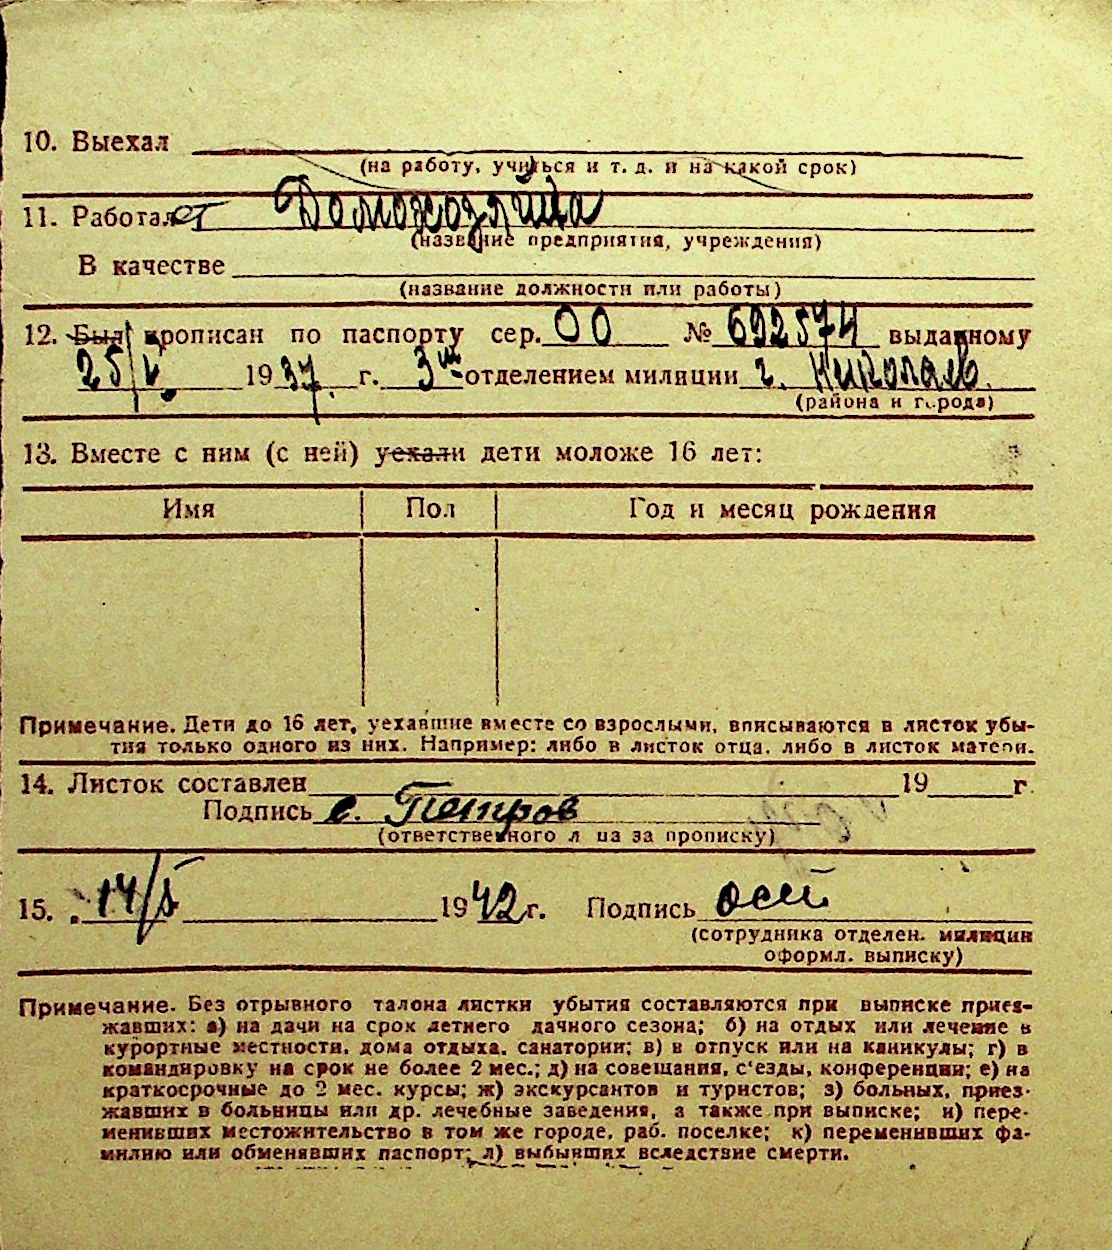 10. Выехал
(на работу, учиться и т. д. и на какой срок)
11. Работает Домохозяйка
(название предприятия, учреждения)
В качестве
(название должности или работы)
12. Был прописан по паспорту сер. 00 № 692574 выданному
25/V. 1937. г. 3м отделением милиции г. Николаев.
(района и города)
13. Вместе с ним (с ней) уехали дети моложе 16 лет:
Имя Пол Год и месяц рождения
Примечание. Дети до 16 лет, уехавшие вместе со взрослыми, вписываются в листок убы-
тия только одного из них. Например: либо в листок отца, либо в листок матери.
14. Листок составлен 19 г.
Подпись с. Петров
(ответственного лица за прописку)
15. 14/5 1942 г. Подпись
(сотрудника отделен. милиции
оформл. выписку)
Примечание. Без отрывного талона листки убытия составляются при выписке приез-
жавших: а) на дачи на срок летнего дачного сезона; б) на отдых или лечение в
курортные местности, дома отдыха, санатории; в) в отпуск или на каникулы; г) в
командировку на срок не более 2 мес.; д) на совещания, с'езды, конференции; е) на
краткосрочные до 2 мес. курсы; ж) экскурсантов и туристов; з) больных, приез-
жавших в больницы или др. лечебные заведения, а также при выписке; и) пере-
менивших местожительство в том же городе, раб. поселке; к) переменивших фа-
милию или обменявших паспорт; л) выбывших вследствие смерти.